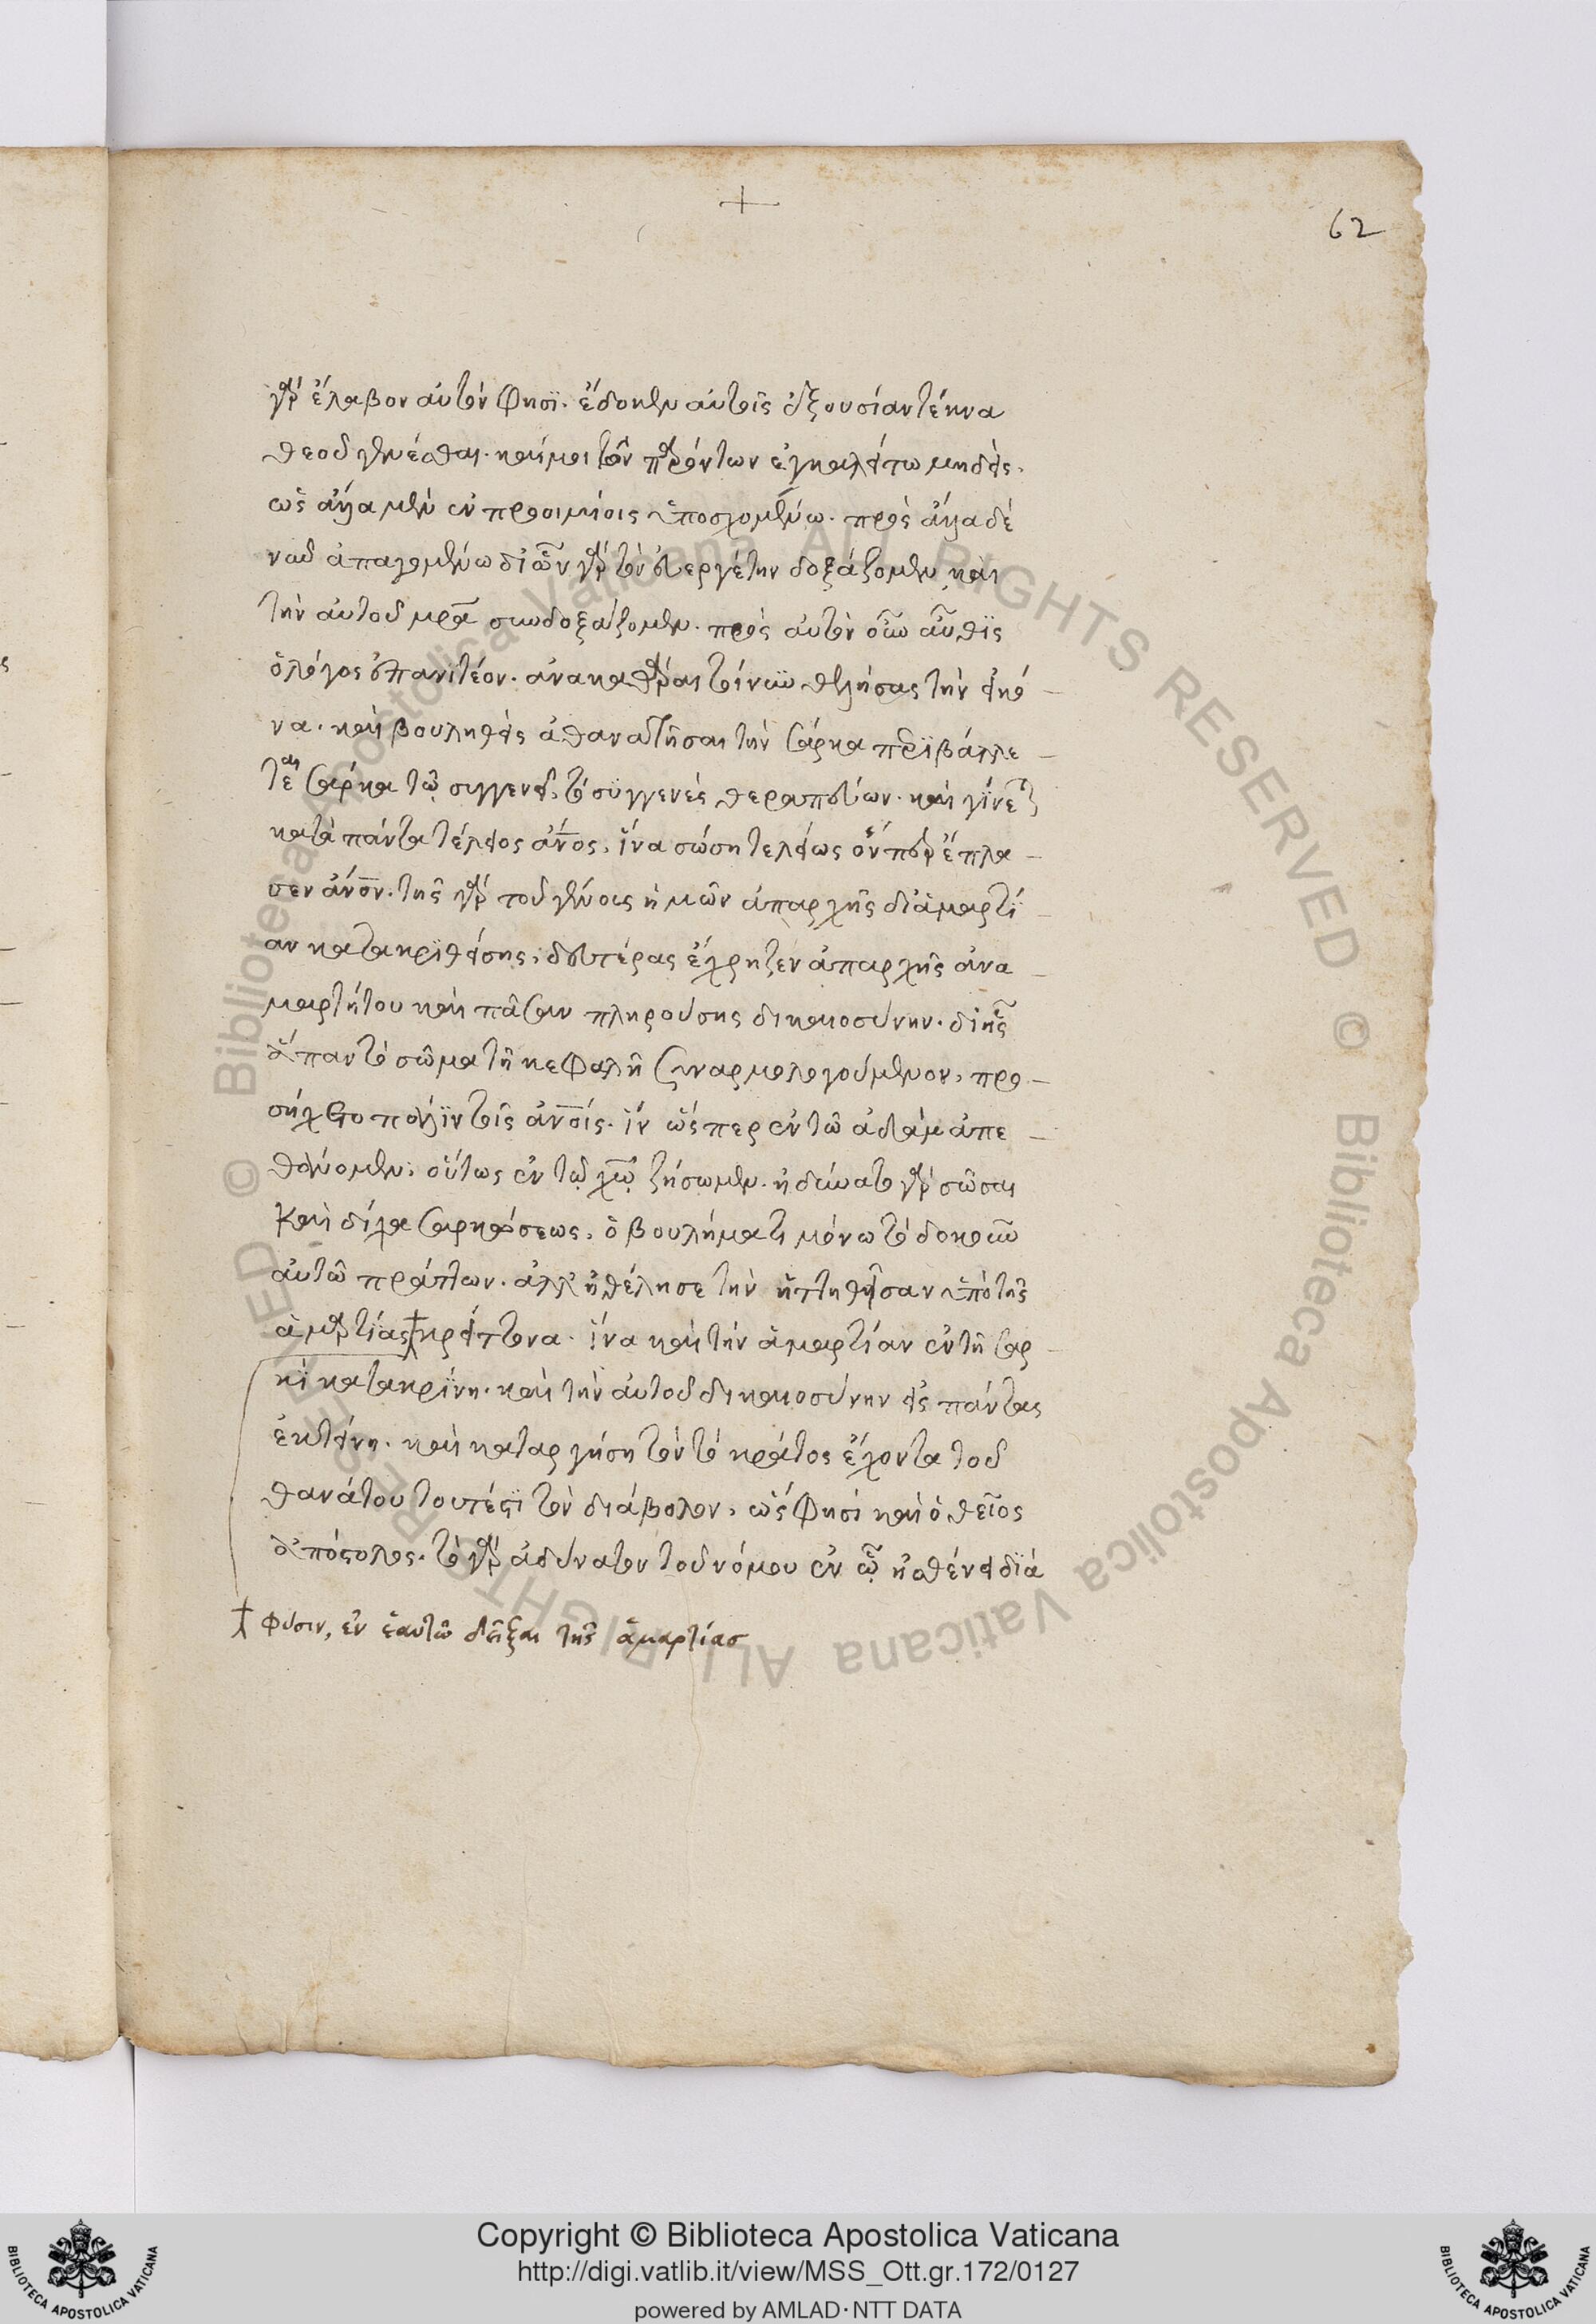 62
γὰρ ἔλαβον αὐτὸν φησὶ. ἔδωκεν αὐτοῖς ἐξουσίαν τέκνα
θεοῦ γενέσθαι. καί μοι τῶν παρόντων ἐγκαλείτω μηδείς.
ὡς ἄλλα μὲν ἐν προοιμίοις ὑποσχομένω. πρὸς ἄλλα δὲ
νῦν ἀπαγομένω δι ὧν γὰρ τὸν εὐεργέτην δοξάζομεν καὶ
τὴν αὐτοῦ μρα συνδοξάζομεν. πρὸς αὐτὸν οὖν αὖθις
ὁ λόγος ἐπανιτέον. ἀνακαθᾶραι τοίνυν θελήσας τὴν εἰκό
να. καὶ βουληθεὶς ἀθανατῆσαι τὴν σάρκα περιβάλλε
ται σάρκα τῷ συγγενεῖ. τὸ συγγενὲς θεραπεύων. καὶ γίνεται
κατὰ πάντα τέλειος ἄνος. ἵνα σώση τελείως ὅνπερ ἔπλα
σεν ἄνον. τῆς γὰρ τοῦ γένους ἡμῶν ἀπαρχῆς δι ἁμαρτί
αν κατακριθείσης, δευτέρας ἔχρηζεν ἀπαρχῆς ἀνα
μαρτήτου καὶ πᾶσαν πληρούσης δικαιοσύνην. δι ἧς
ἅπαν τὸ σῶμα τῆ κεφαλῆ συναρμολογούμενον, προ
σήχθη πάλιν τοῖς ἀνοίς. ἵν ὥσπερ ἐν τῶ ἀδὰμ ἀπε
θάνομεν, οὕτως ἐν τῷ χῷ ζήσωμεν. ἠδύνατο γὰρ σῶσαι
καὶ δίχα σαρκώσεως, ὁ βουλήματι μόνω τὸ δοκοῦν
αὐτῶ πράττων. ἀλλ ἠθέλησε τὴν ἡττηθῆσαν ὑπὸ τῆς
ἁμαρτίας κρείττονα. ἵνα καὶ τὴν ἁμαρτίαν ἐν τῆ σαρ
κὶ κατακρίνη. καὶ τὴν αὐτοῦ δικαιοσύνην εἰς πάντας
ἐκτείνη. καὶ καταργήση τὸν τὸ κράτος ἔχοντα τοῦ
θανάτου τουτέστι τὸν διάβολον, ὥς φησὶ καὶ ὁ θεῖος
ἀπόστολος. τὸ γὰρ ἀδύνατον τοῦ νόμου ἐν ᾧ ἠσθένει διὰ
φύσιν, ἐν ἑαυτῶ δεῖξαι τῆς ἁμαρτίας
Copyright © Biblioteca Apostolica Vaticana
http://digi.vatlib.it/view/MSS_Ott.gr.172/0127
powered by AMLAD·NTT DATA
© Biblioteca Apostolica Vaticana ALL RIGHTS RESERVED
© Biblioteca Apostolica Vaticana ALL RIGHTS RESERVED
BIBLIOTECA APOSTOLICA VATICANA
BIBLIOTECA APOSTOLICA VATICANA